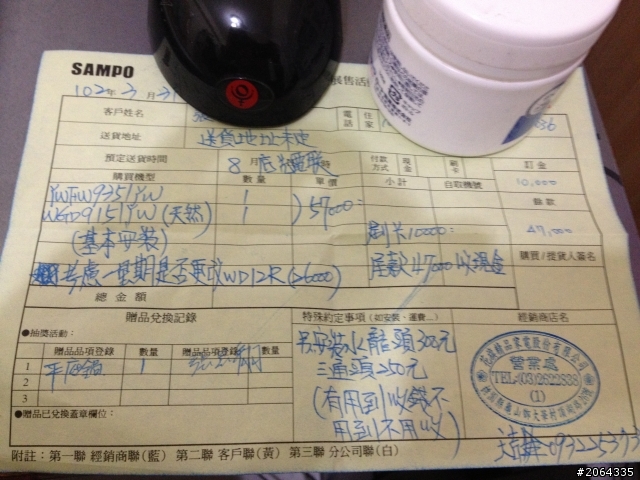 SAMPO
102年3月31
展售活
客戶姓名
電話 住家
送貨地址 送貨地址未定
預定送貨時間 8月底先電聯
付款方式 現金 刷卡 訂金
購買機型 數量 單價 小計 自取機號 10,000
YWTHW9351YW 1
WGD9151YW (天然) 1 ) 57000:
餘款
47,000
(基本安裝) 刷卡10000:
購買/提貨人簽名
考慮一星期是否更改WD12R(26000) 尾款47000收現金
總金額
贈品兌換記錄 特殊約定事項(如安裝、運費...) 經銷商店名
●抽獎活動:
另安裝水龍頭300元
贈品品項登錄 數量 贈品品項登錄 數量
1 平底鍋 1
三通頭250元
2
3
(有用到收錢不
用到不用收)
營業處
TEL:(03)2622838
(1)
●贈品已兌換蓋章欄位:
附註:第一聯 經銷商聯(藍) 第二聯 客戶聯(黃) 第三聯 分公司聯(白)
#2064335